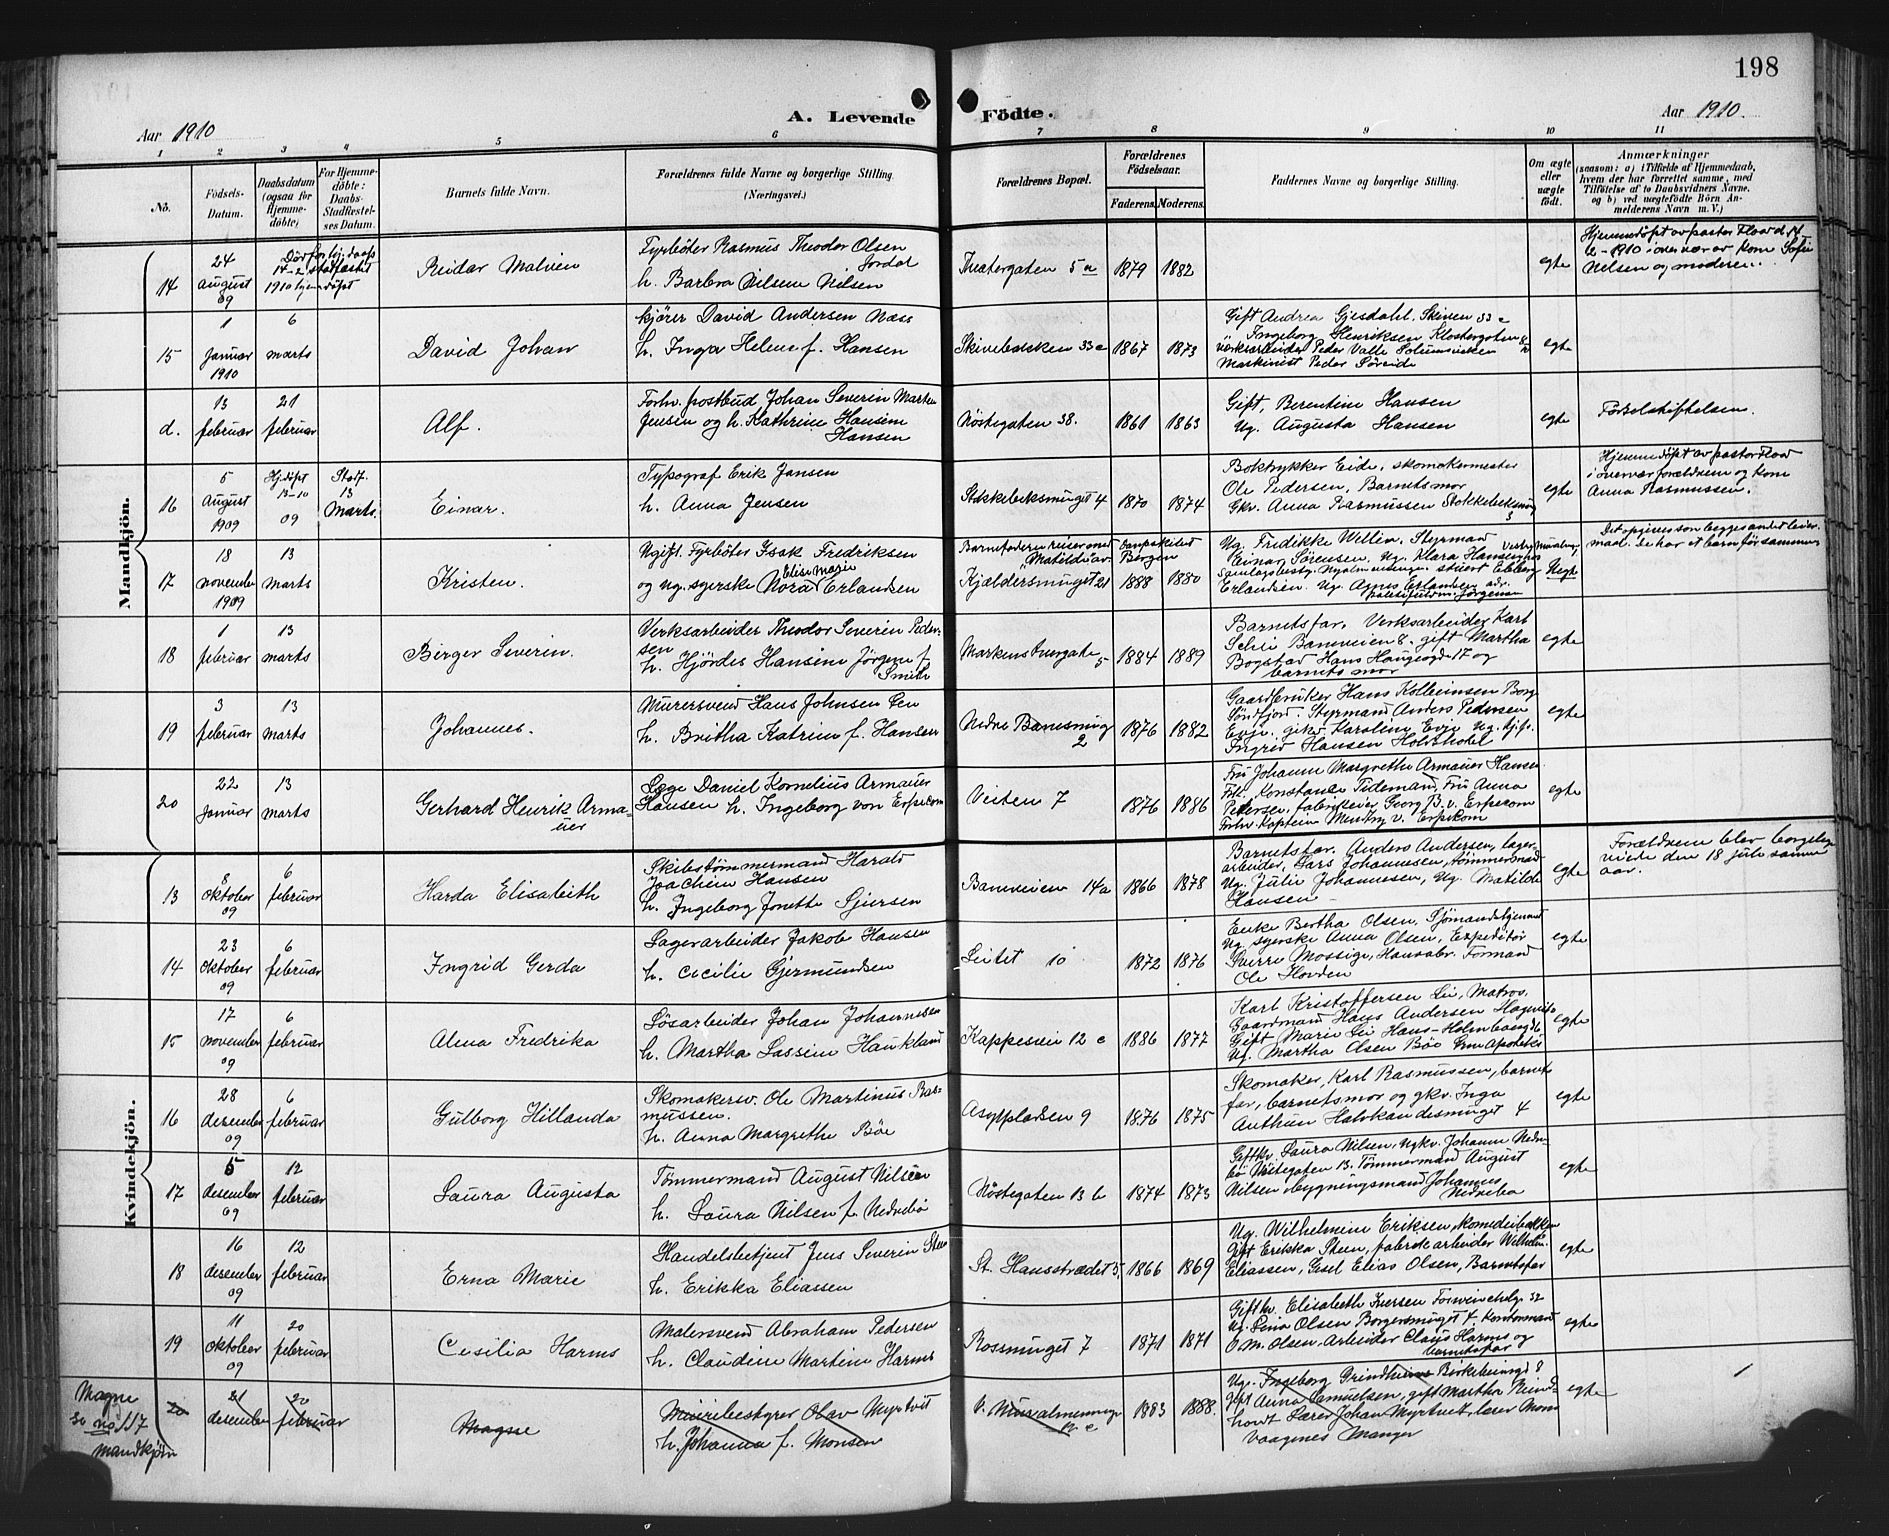 198
Aar 1910
A. Levende Födte.
Aar 1910.
1 2 3 4 5 6 7 8 9 10 11
No.
Födsels-
Datum.
Daabsdatum
(ogsaa for
Hjemme-
döbte)
For Hjemme-
döbte:
Daabs-
Stadfæstel-
ses Datum.
Barnets fulde Navn.
Forældrenes fulde Navne og borgerlige Stilling.
(Næringsvei.)
Forældrenes Bopæl.
Forældrenes
Födselsaar.
Faderens. Moderens.
Faddernes Navne og borgerlige Stilling.
Om ægte
eller
uægte
födt.
Anmærkninger
(saasom: a) i Tilfælde af Hjemmedaab,
hvem der har forrettet samme, med
Tilföielse af to Daabsvidners Navne.
og b) ved uægtefödte Börn An-
melderens Navn m. V.)
Mandkjön.
14
24
august
09
14-2 stadfæstet
1910 hjemdöpt
Reidar Malvin
Fyrböter Rasmus Theodor Olsen
Jordal
h. Barbra Nilsine Nilsen
Theatergaten 5 a
1879 1882
egte
Hjemmedöpt av pastor Floor d. 14
2-1910 i overvær av kone Sofie
Nelsen og moderen.
15
1
januar
1910
6
marts
David Johan
kjörer David Andersen Næss
h. Inga Helene f. Hansen
Skivebakken 33a
1867 1873
Gift Andrea Gjesdahl. Skiven 33 a
Ingeborg Henriksen Klostergaten
Værksarbeider Peder Valle Solumsvikken
Maskinist Peder Söreide
egte
d.
13
februar
21
februar
Alf.
Forhv. postbud Johan Severin Martin
Jensen og h. Kathrine Hansine
Hansen
Nöstegaten 38.
1861 1863
Gift, Berentine Hansen
Ug. Augusta Hansen
egte
Födselsstiftelsen.
16
5
August
1909
Hj.döpt
13-10
09
Statf.
13
Marts.
Einar.
Typograf Erik Jansen
h. Anna Jensen
Stokkebeksmuget 4
1870 1874
Boktrykker Eide, skomakermester
Ole Pedersen, Barnets mor
Gkv. Anna Rasmussen Stokkebeksmug
3
egte
Hjemmedöpt av pastor Floor
i overvær forældrene og kone
Anna Rasmussen.
17
18
november
1909
13
marts
Kristen.
Ugift. Fyrböter Issk Fredriksen
Elise Marie
og ug. syerske Nora Erlandsen
Barnefaderen reiser med
"Matilda" av Bergen
Kjældersmuget 21
1888 1880
Ug. Fredikke Wellin, Styrmand
Einar Sörensen, Ug. Klara Hansen
Erlandsen. Ug. Agnes Erlandsen
Uegte
Det opgives som begges andet leier-
maal. De har et barn för sammen
18
1
februar
13
marts
Birger Severin.
Verksarbeider Theodor Severin Peder-
sen
h. Hjördis Hansine Jörgine f.
Smith
Markens tvergate
5
1884 1889
Barnets far. Verksarbeider Karl
Schei Banveien 8. gift Martha
Bogstad Hans Haugesgd. 17 og
barnets mor
egte
19
3
februar
13
marts
Johannes.
Murersvend Hans Johnsen Len
h. Britha Katrine f. Hansen
Nedre Banesmug
2
1876 1882
Gaardbruker Hans Kolbeinsen Borg
Söndfjord. Styrmand Anders Pedersen
Evje. gkv. Karoline Evje Ug. tj.p.
Ingrid Hansen Holdthotel
egte
20
22
januar
13
marts
Gerhard Henrik Arma-
uer
Læge Daniel Kornelius Armauer
Hansen h. Ingeborg von Erpecom
Veiten 7
1876 1886
Fru Johanne Margrethe Armauer Hansen
Frk. Konstance Tidemand, Fru Anna
Petersen, fabrikeier Georg B. v. Erpecom
Forhv. Kaptein Mentz v. Erpekom
egte
Kvindekjön.
13
8
oktober
09
6
februar
Harda Elisabeth
Skibstömmermand Harald
Joachim Hansen
h. Ingeborg Jonette Sjursen
Banveien 14a
1866 1878
Barnets far. Anders Andersen, lager-
arbeider, Lars Johannesen, tömmermand
Ug. Julie Johannesen, Ug. Matilde
Hansen
egte
Forældrene blev borgerlig
viede den 18 juli samme
aar.
14
23
oktober
09
6
februar
Ingrid Gerda
Lagerarbeider Jakob Hansen
h. Cecilie Gjermundsen
Leitet 10
1872 1876
Enke Bertha Olsen, Sjömandshjemmet
Ug. syerske Anna Olsen, Expeditör
Sverre Mossige, Hansabr. Formand
Ole Hovden
egte
15
17
november
09
6
februar
Alma Fredrika
Lösarbeider Johan Johannessen
h. Martha Lassine Haukland
Kappesvei 12 c
1886 1877
Karl Kristoffersen Lie, Matros,
Gaardmand Hans Andersen
Gift Marie Lie Hans-Holmboegd 6
Ug. Martha Olsen Böe
egte
16
28
desember
09
6
februar
Gulborg Hillanda
Skomakersv. Ole Martinus Ras-
mussen.
h. Anna Margrethe Böe
Asylpladsen 9
1876 1875
Skomaker, Karl Rasmussen, barnets
far, barnets mor og gkv. Inga
Anthun Halvkandesmuget 4
egte
17
5
desember
09
12
februar
Laura Augusta
Tömmermand August Nilsen
h. Laura Nilsen f. Nedrebö
Nöstegaten 13 b
1874 1873
Giftkv. Laura Nilsen, ugkv. Johanne Nedre-
bö Nöstegaten 13. Tömmermand August
Nilsen bygningsmand Johannes
Nedrebø
egte
18
16
desember
09
12
februar
Erna Marie
Handelsbetjent Jens Severin Steen
h. Erikka Eliassen
St. Hansstrædet 5.
1866 1869
Ug. Wilhelmine Eriksen, Komediebakken
Gift Erikka Steen, fabrikarbeider Wilhelm
Eliassen, Gesel Elias Olsen, Barnets far
egte
19
11
oktober
09
20
februar
Cecilia Harms
Malersvend Abraham Pedersen
h. Claudine Martine Harms
Rosesmuget 7
1871 1871
Giftkv. Elisabeth Iversen Formeinehlg. 32
Ug. Lina Olsen Borgersmuget 4, Kontormand
O. M. Olsen. Arbeider Claus Harms og
barnets far
egte
Magne
se no 117
mandkjön
20
21
desember
20
februar
Magne
Meieribestyrer Olav Myrtvit
h. Johanna f. Monsen
V. Muralmenning
1883 1888.
Ug. Ingeborg Grindheim Birkebeinergt 8
Gift Anna Samuelsen, gift Martha Reind-
holdt Lærer Johan Myrtveit, lærer Mons
Vaagenes Manger
egte